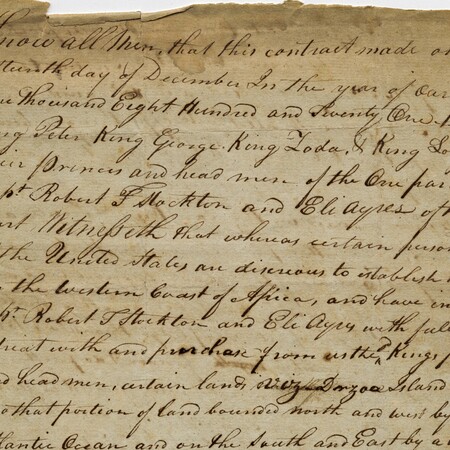 Know all Men, that this contract made on
teenth day of December In the year of our
One Thousand Eight Hundred and Twenty One.
Peter King George King Zoda, & King
Princes and head men of the One par
pt Robert F Stockton and Eli Ayres of
Witnesseth that whereas certain person
the United States are disereous to establish
the western Coast of Africa, and have in
pt Robert F Stockton and Eli Ayres with full
treat with and purchase from us the sd Kings
head men, certain lands viz. Dozoa Island
that portion of land bounded north and west by
lantic Ocean and on the South and East by a